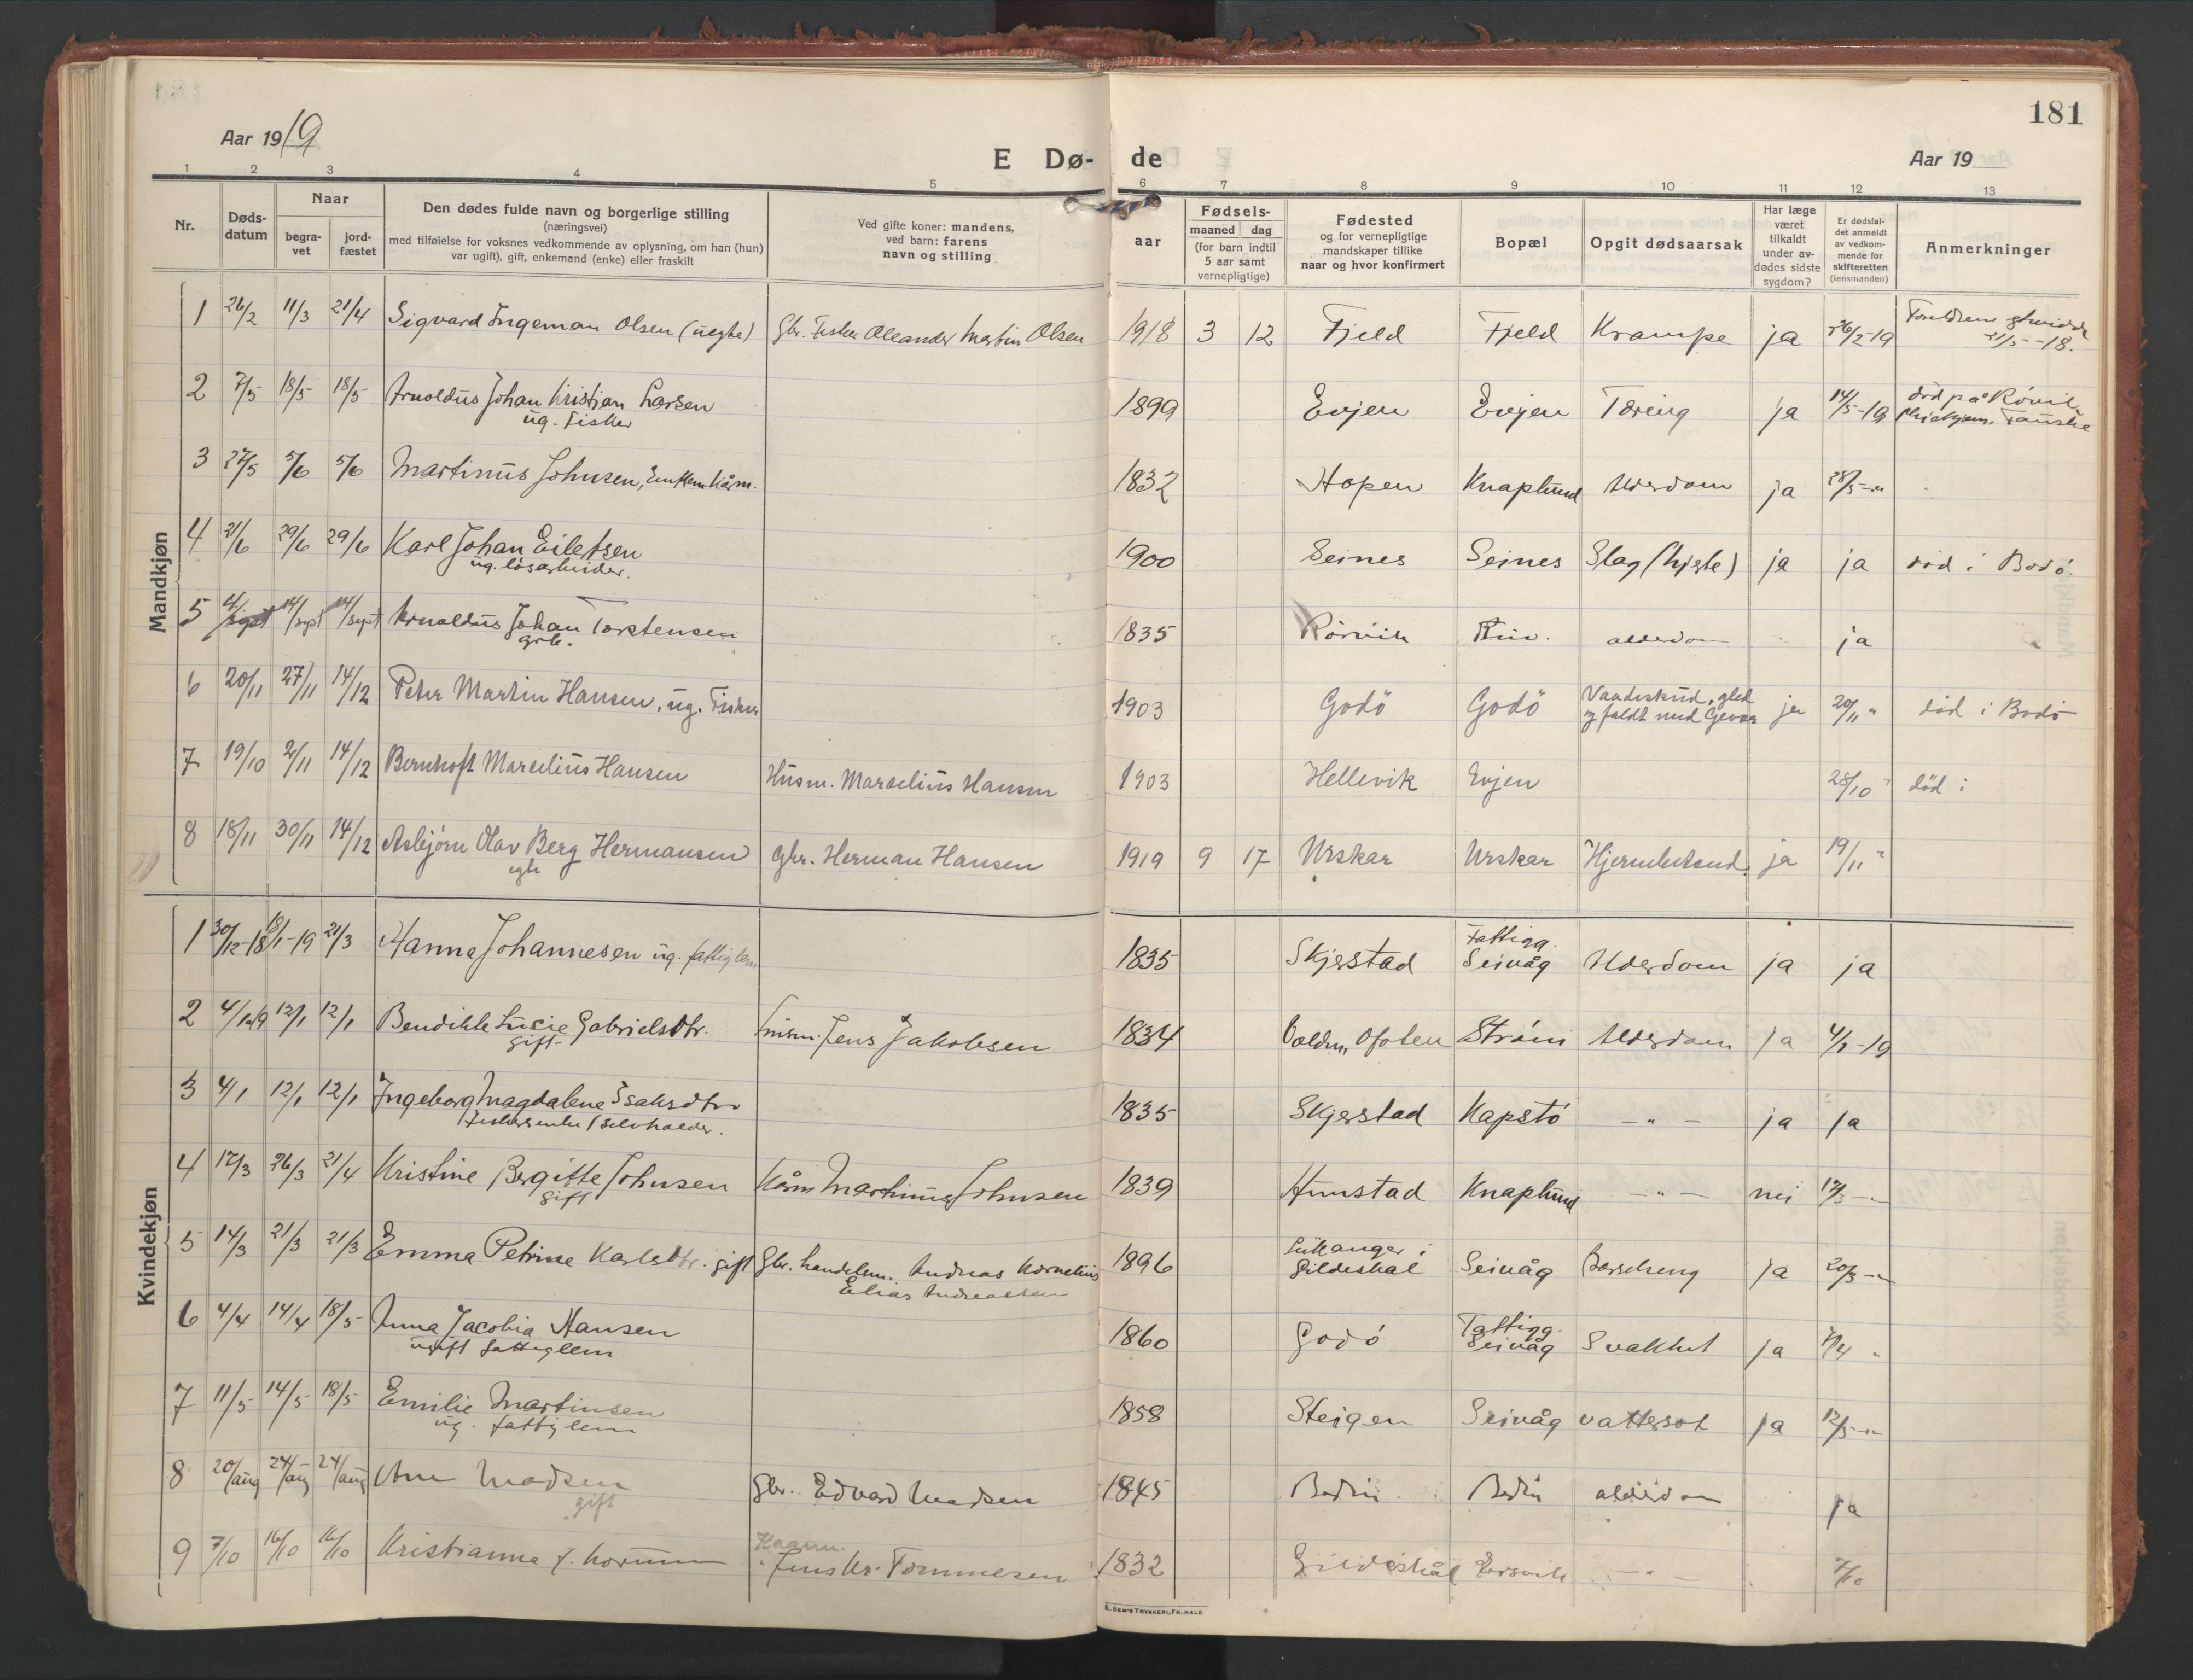 181
Aar 1919
E Dø- de
Aar 19
1 2 3 4 5 6 7 8 9 10 11 12 13
Nr.
Døds-
datum
Naar
begra-
vet
jord-
fæstet
Den dødes fulde navn og borgerlige stilling
(næringsvei)
med tilføielse for voksnes vedkommende av oplysning, om han (hun)
var ugift), gift, enkemand (enke) eller fraskilt
Ved gifte koner: mandens,
ved barn: farens
navn og stilling
aar
Fødsels-
maaned dag
(for barn indtil
5 aar samt
vernepligtige)
Fødested
og for vernepligtige
mandskaper tillike
naar og hvor konfirmert
Bopæl
Opgit dødsaarsak
Har læge
været
tilkaldt
under av-
dødes sidste
sygdom?
Er dødsfal-
det anmeldt
av vedkom-
mende for
skifteretten
(lensmanden)
Anmerkninger
Mandkjøn
1 26/2 11/3 21/4 Sigvard Ingeman Olsen (uegte) Gbr. Fisker Martin Olsen 1918 3 12 Fjeld Fjeld Krampe ja 26/2-19
21/5-18.
2 7/5 18/5 18/5 Arnoldus Johan Kristian Larsen 1899 Evjen Evjen Tæring ja 14/5-19 død på Rövik
ug. Fisker Tauske
3 27/5 5/6 5/6 Martinus Johnsen, Enkem. Kårm. 1832 Hopen Knaplund Alderdom ja 28/5-"
4 21/6 29/6 29/6 Karl Johan Eiletsen 1900 Seines Seines Slag (hjerte) ja ja død i Bodö.
ug. løsarbeider.
5 4/sept 14/sept 14/sept Arnoldus Johan Torstensen 1835 Rörvik alderdom ja
6 20/11 27/11 14/12 Peter Martin Hansen, ug. Fisker 1903 Godö Godö Vaadeskud, gled
og faldt med Gevær ja 20/11 " död i Bodö
7 19/10 2/11 14/12 Bernhoft Marselius Hansen Husm. Marselius Hansen 1903 Hellevik Evjen 28/10 " död i
8 18/11 30/11 14/12 Asbjørn Olav Berg Hermansen Gbr. Herman Hansen 1919 9 17 Urskar Urskar ja 19/11 "
egte
Kvindekjøn
1 30/12-18 18/1-19 21/3 Hanna Johannesen ug. fattiglem 1835 Skjerstad Fattigg.
Seivåg Alderdom ja ja
2 4/1-19 12/1 12/1 Bendikte Lucie Gabrielsdtr. Jens Jakobsen 1834 Ofoten Ström Alderdom ja 4/1-19
gift
3 4/1 12/1 12/1 Ingeborg Magdalene Isaksdtr 1835 Skjerstad Kapstö -"- ja ja
fiskerenke (selvholder.
4 17/3 26/3 21/4 Kristine Bergitte Johnsen Kårm Martinus Johnsen 1839 Hunstad Knaplund -"- nei 17/3-"
gift
5 14/3 21/3 21/3 Emma Petrine Karlsdtr. gift Gbr. handelsm. Andreas Kornelius
Elias Andreassen 1896
Gildeskal Seivåg Barselseng ja 20/3-"
6 4/4 14/4 18/5 Anna Jacobia Hansen 1860 Godö Fattigg.
Seivåg Svakhet ja
ugift fattiglem
7 11/5 14/5 18/5 Emilie Martinsen 1858 Steigen Seivåg vattersot ja 12/5-"
ug. fattiglem
8 20/aug 24/aug 24/aug Ane Madsen Gbr. Edvard Madsen 1845 Bodin Bodin alderdom ja
gift
9 7/10 16/10 16/10 Kristianna Kaarm.
Jens Kr. Tommesen 1832 Gildeskål Eersvik -"- 7/10
E. SEM'S TRYKKERI, FR.HALD